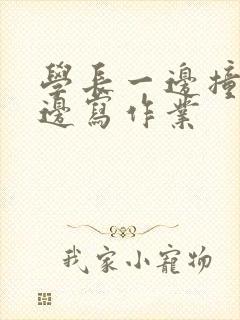 學長一邊撞
邊寫作業
我家小寵物